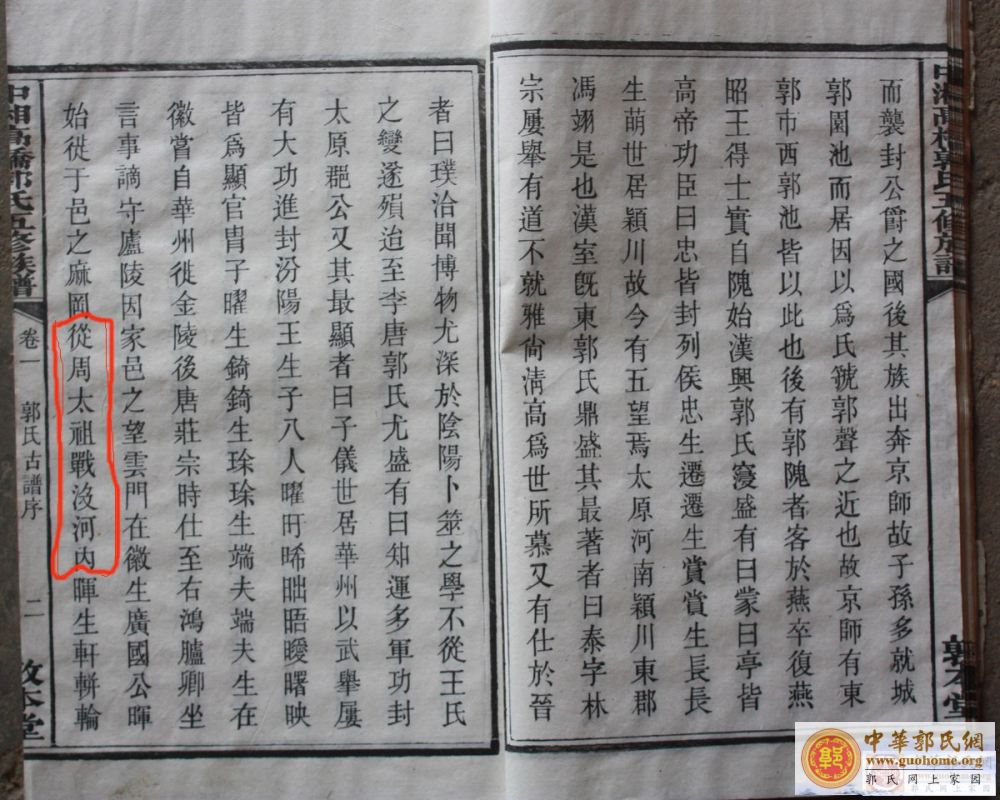 而襲封公爵之國後其族出奔京師故子孫多就城
郭園池而居因以爲氏虢郭聲之近也故京師有東
郭市西郭池皆以此也後有郭隗者客於燕卒復燕
昭王得士實自隗始漢興郭氏寖盛有曰蒙曰亭皆
高帝功臣曰忠皆封列侯忠生遷遷生賞賞生長長
生萌世居潁川故今有五望焉太原河南潁川東郡
馮翊是也漢室旣東郭氏鼎盛其最著者曰泰字林
宗屢舉有道不就雅尙淸高爲世所慕又有仕於晉
者曰璞洽聞博物尤深於陰陽卜筮之學不從王氏
之變遂殞迨至李唐郭氏尤盛有曰知運多軍功封
太原郡公又其最顯者曰子儀世居華州以武舉屢
有大功進封汾陽王生子八人曜旰晞昢晤曖曙映
皆爲顯官胄子曜生錡錡生琮琮生端夫端夫生在
徽嘗自華州徙金陵後唐莊宗時仕至右鴻臚卿坐
言事謫守廬陵因家邑之望雲門在徽生廣國公暉
始徙于邑之麻岡從周太祖戰沒河內暉生軒輧輪
中湘高橋郭氏五修族譜
卷一
郭氏古譜序
二
敦本堂
中華郭氏網
www.guohome.org
郭氏網上家园